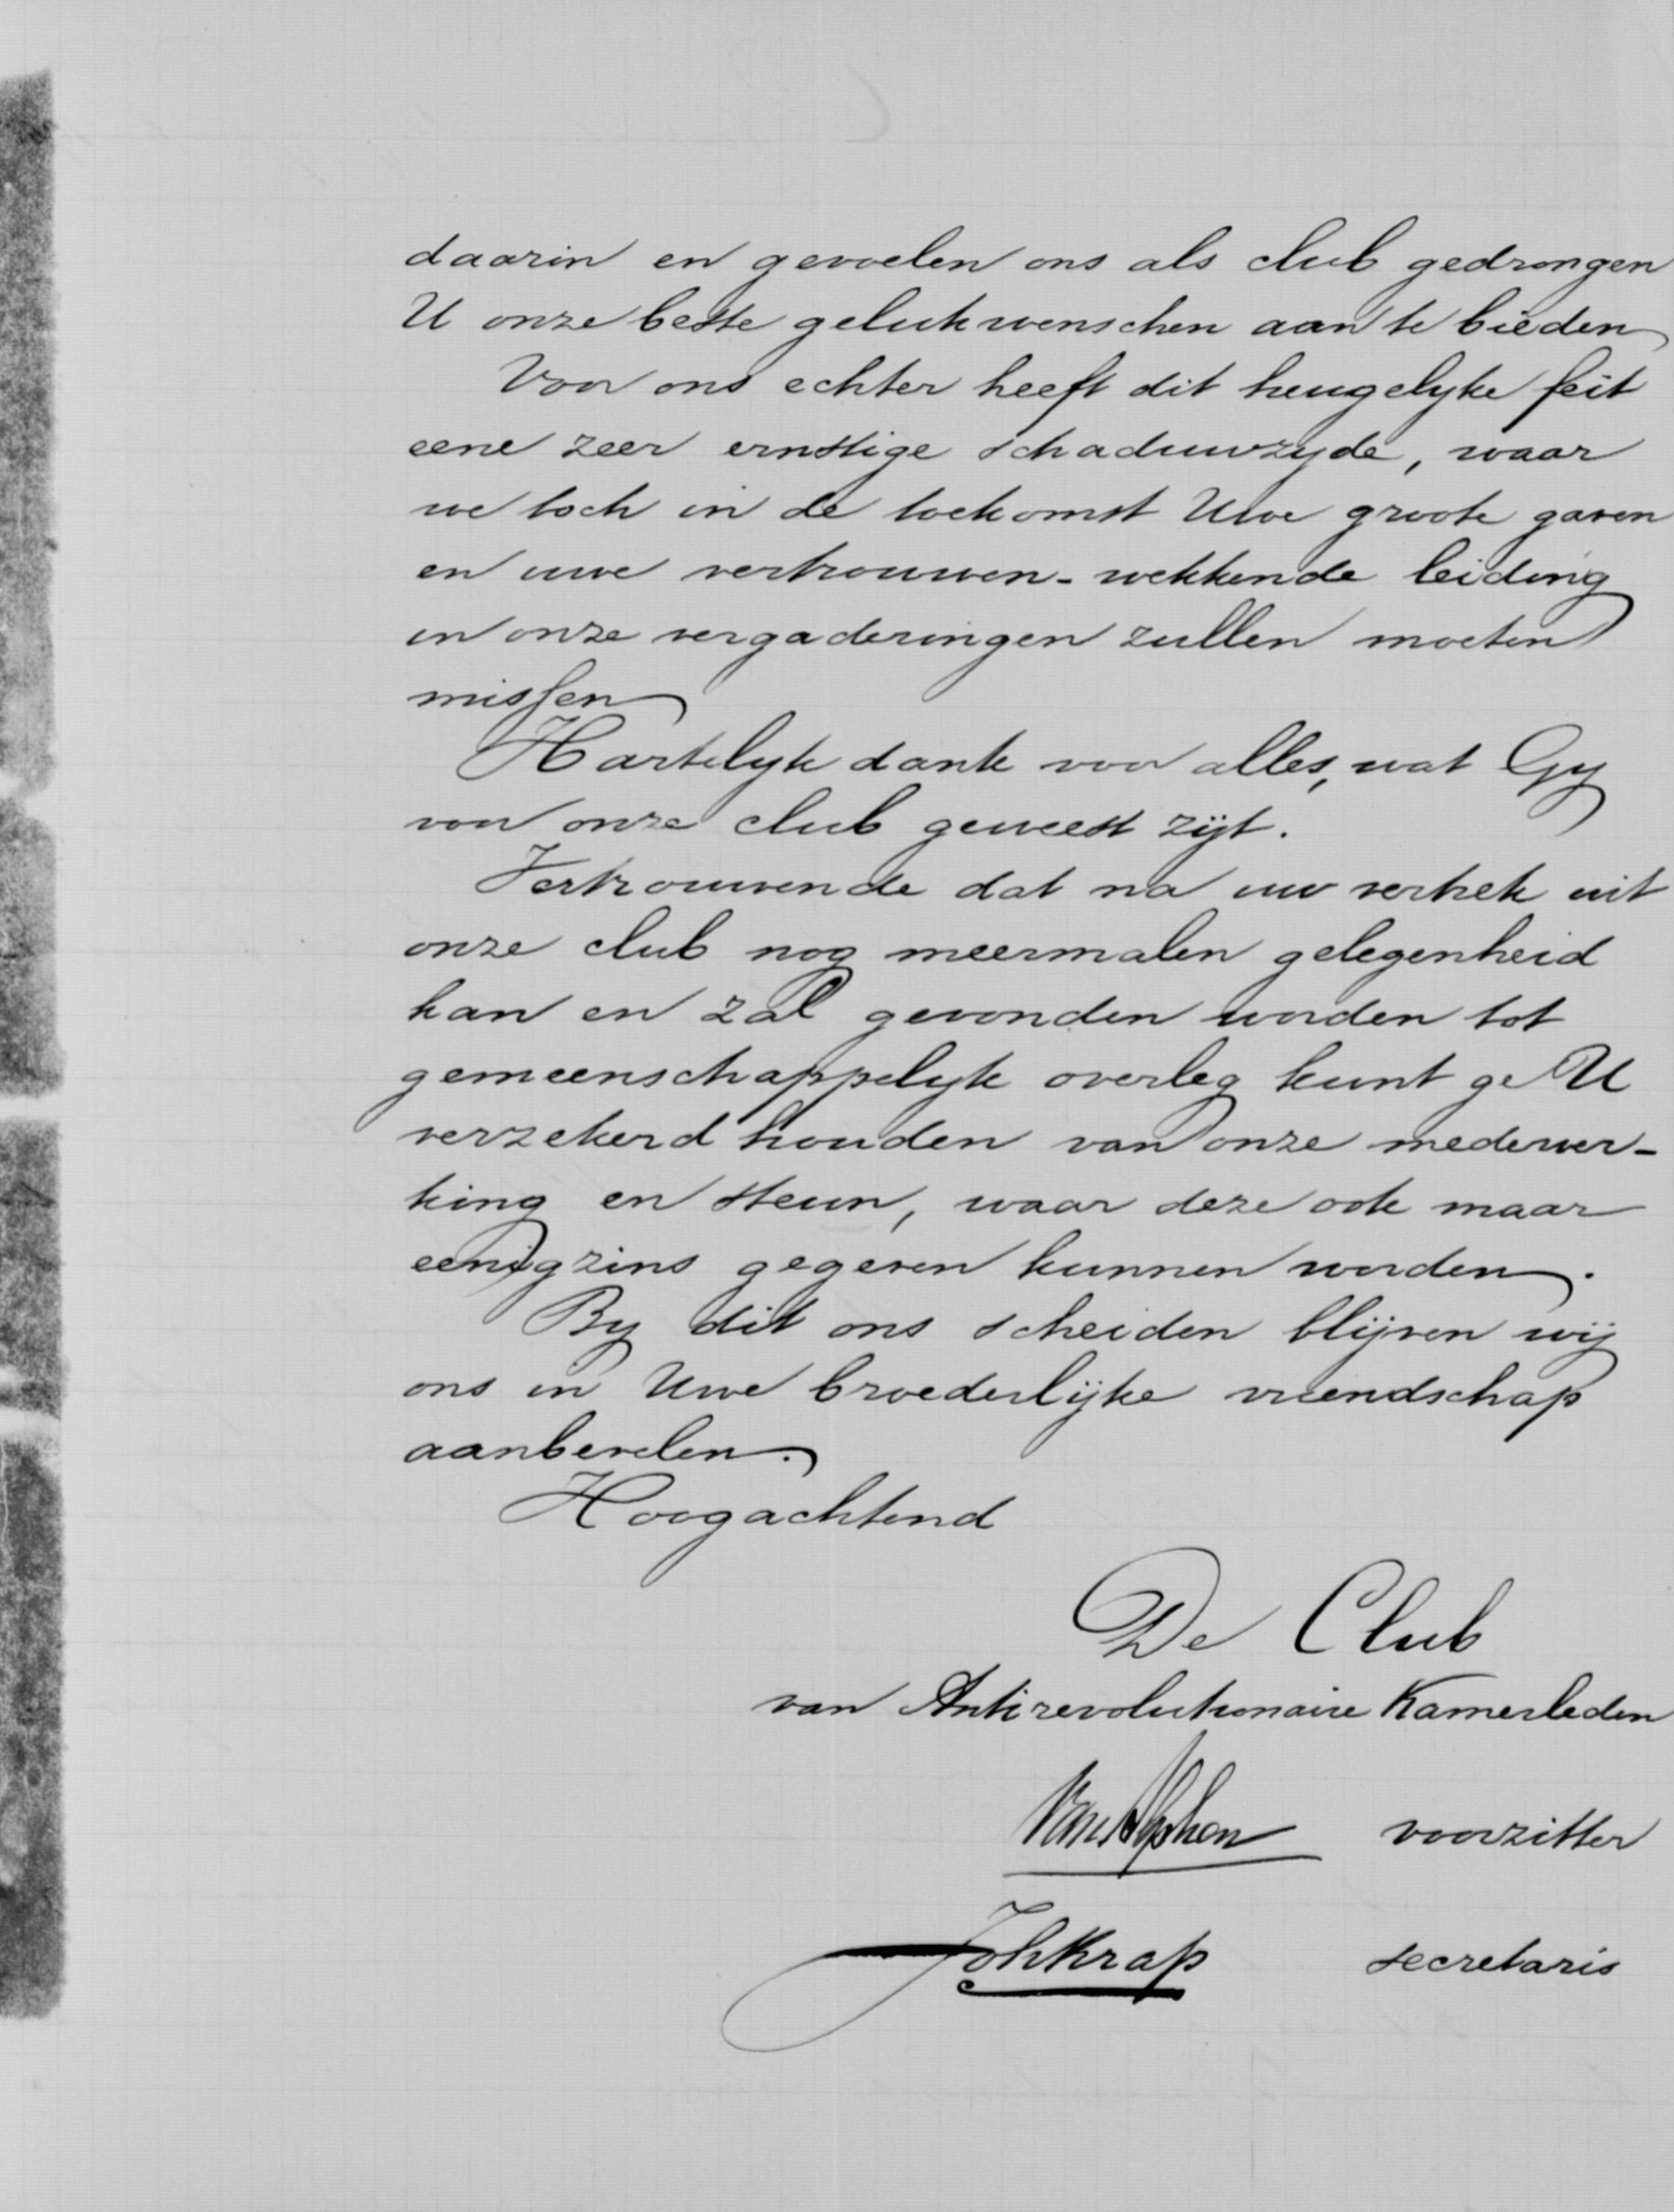 daarin en gevoelen ons als club gedrongen
U onze beste gelukwenschen aan te bieden
Voor ons echter heeft dit heugelyke feit
eene zeer ernstige schaduwzyde, waar
we toch in de toekomst Uwe groote gaven
en uwe vertrouwen-wekkende leiding
in onze vergaderingen zullen moeten
missen
Hartelyk dank voor alles, wat Gy
voor onze club geweest zijt.
Vertrouwende dat na uw vertrek uit
onze club nog meermalen gelegenheid
kan en zal gevonden worden tot
gemeenschappelyk overleg kunt ge U
verzekerd houden van onze medewer-
king en steun, waar deze ook maar
eenigzins gegeven kunnen worden.
By dit ons scheiden blijven wij
ons in Uwe broederlijke vriendschap
aanbevelen.
Hoogachtend
De Club
van Antirevolutionaire Kamerleden
Van Alphen voorzitter
JohKrap secretaris